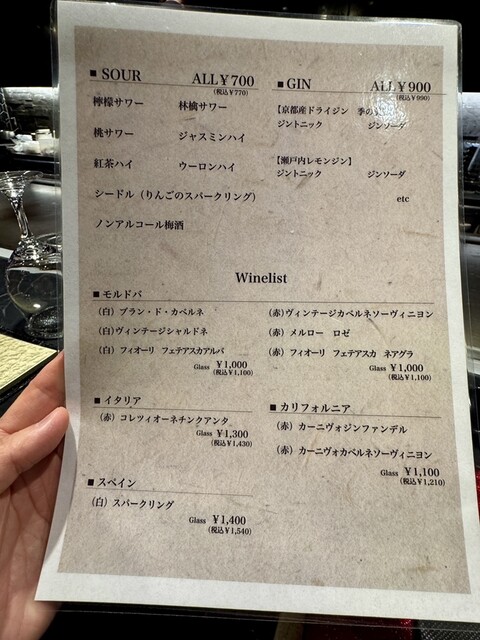 ■ SOUR ALL¥700
(税込¥770)
檸檬サワー 林檎サワー
桃サワー ジャスミンハイ
紅茶ハイ ウーロンハイ
シードル（りんごのスパークリング）
ノンアルコール梅酒
■ GIN ALL¥900
(税込¥990)
【京都産ドライジン 季の
ジントニック ジンソーダ
【瀬戸内レモンジン】
ジントニック ジンソーダ
etc
Winelist
■ モルドバ
（白）ブラン・ド・カベルネ
（白）ヴィンテージシャルドネ
（白）フィオーリ フェテアスカアルバ
Glass ¥1,000
(税込¥1,100)
（赤）ヴィンテージカベルネソーヴィニヨン
（赤）メルロー ロゼ
（赤）フィオーリ フェテアスカ ネアグラ
Glass ¥1,000
(税込¥1,100)
■ イタリア
（赤）コレツィオーネチンクアンタ
Glass ¥1,300
(税込¥1,430)
■ カリフォルニア
（赤）カーニヴォジンファンデル
（赤）カーニヴォカベルネソーヴィニヨン
Glass ¥1,100
(税込¥1,210)
■ スペイン
（白）スパークリング
Glass ¥1,400
(税込¥1,540)